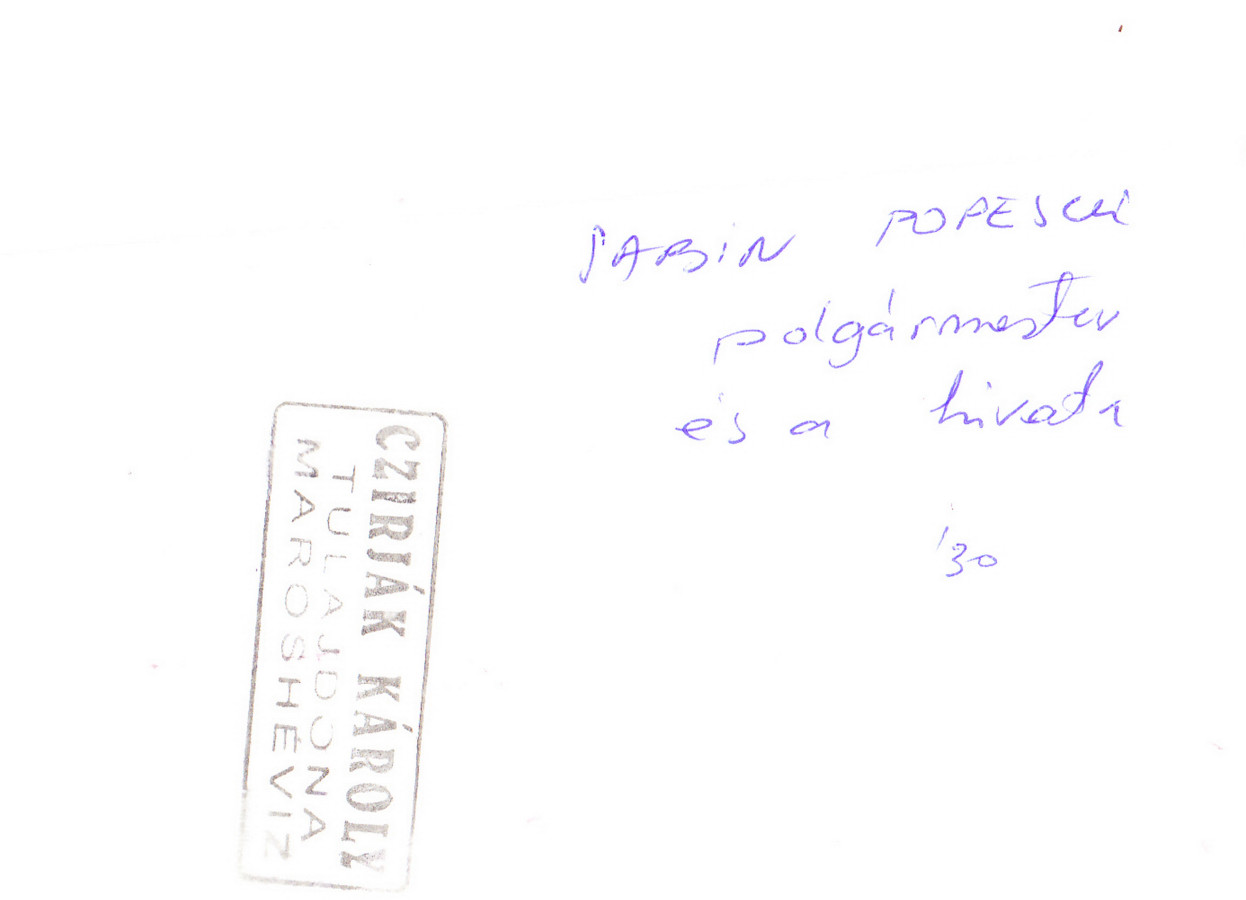 SABiN POPESCU
polgármester
és a hivata
'30
CZIRJÁK KÁROLY
TULAJDONA
MAROSHÉVIZ